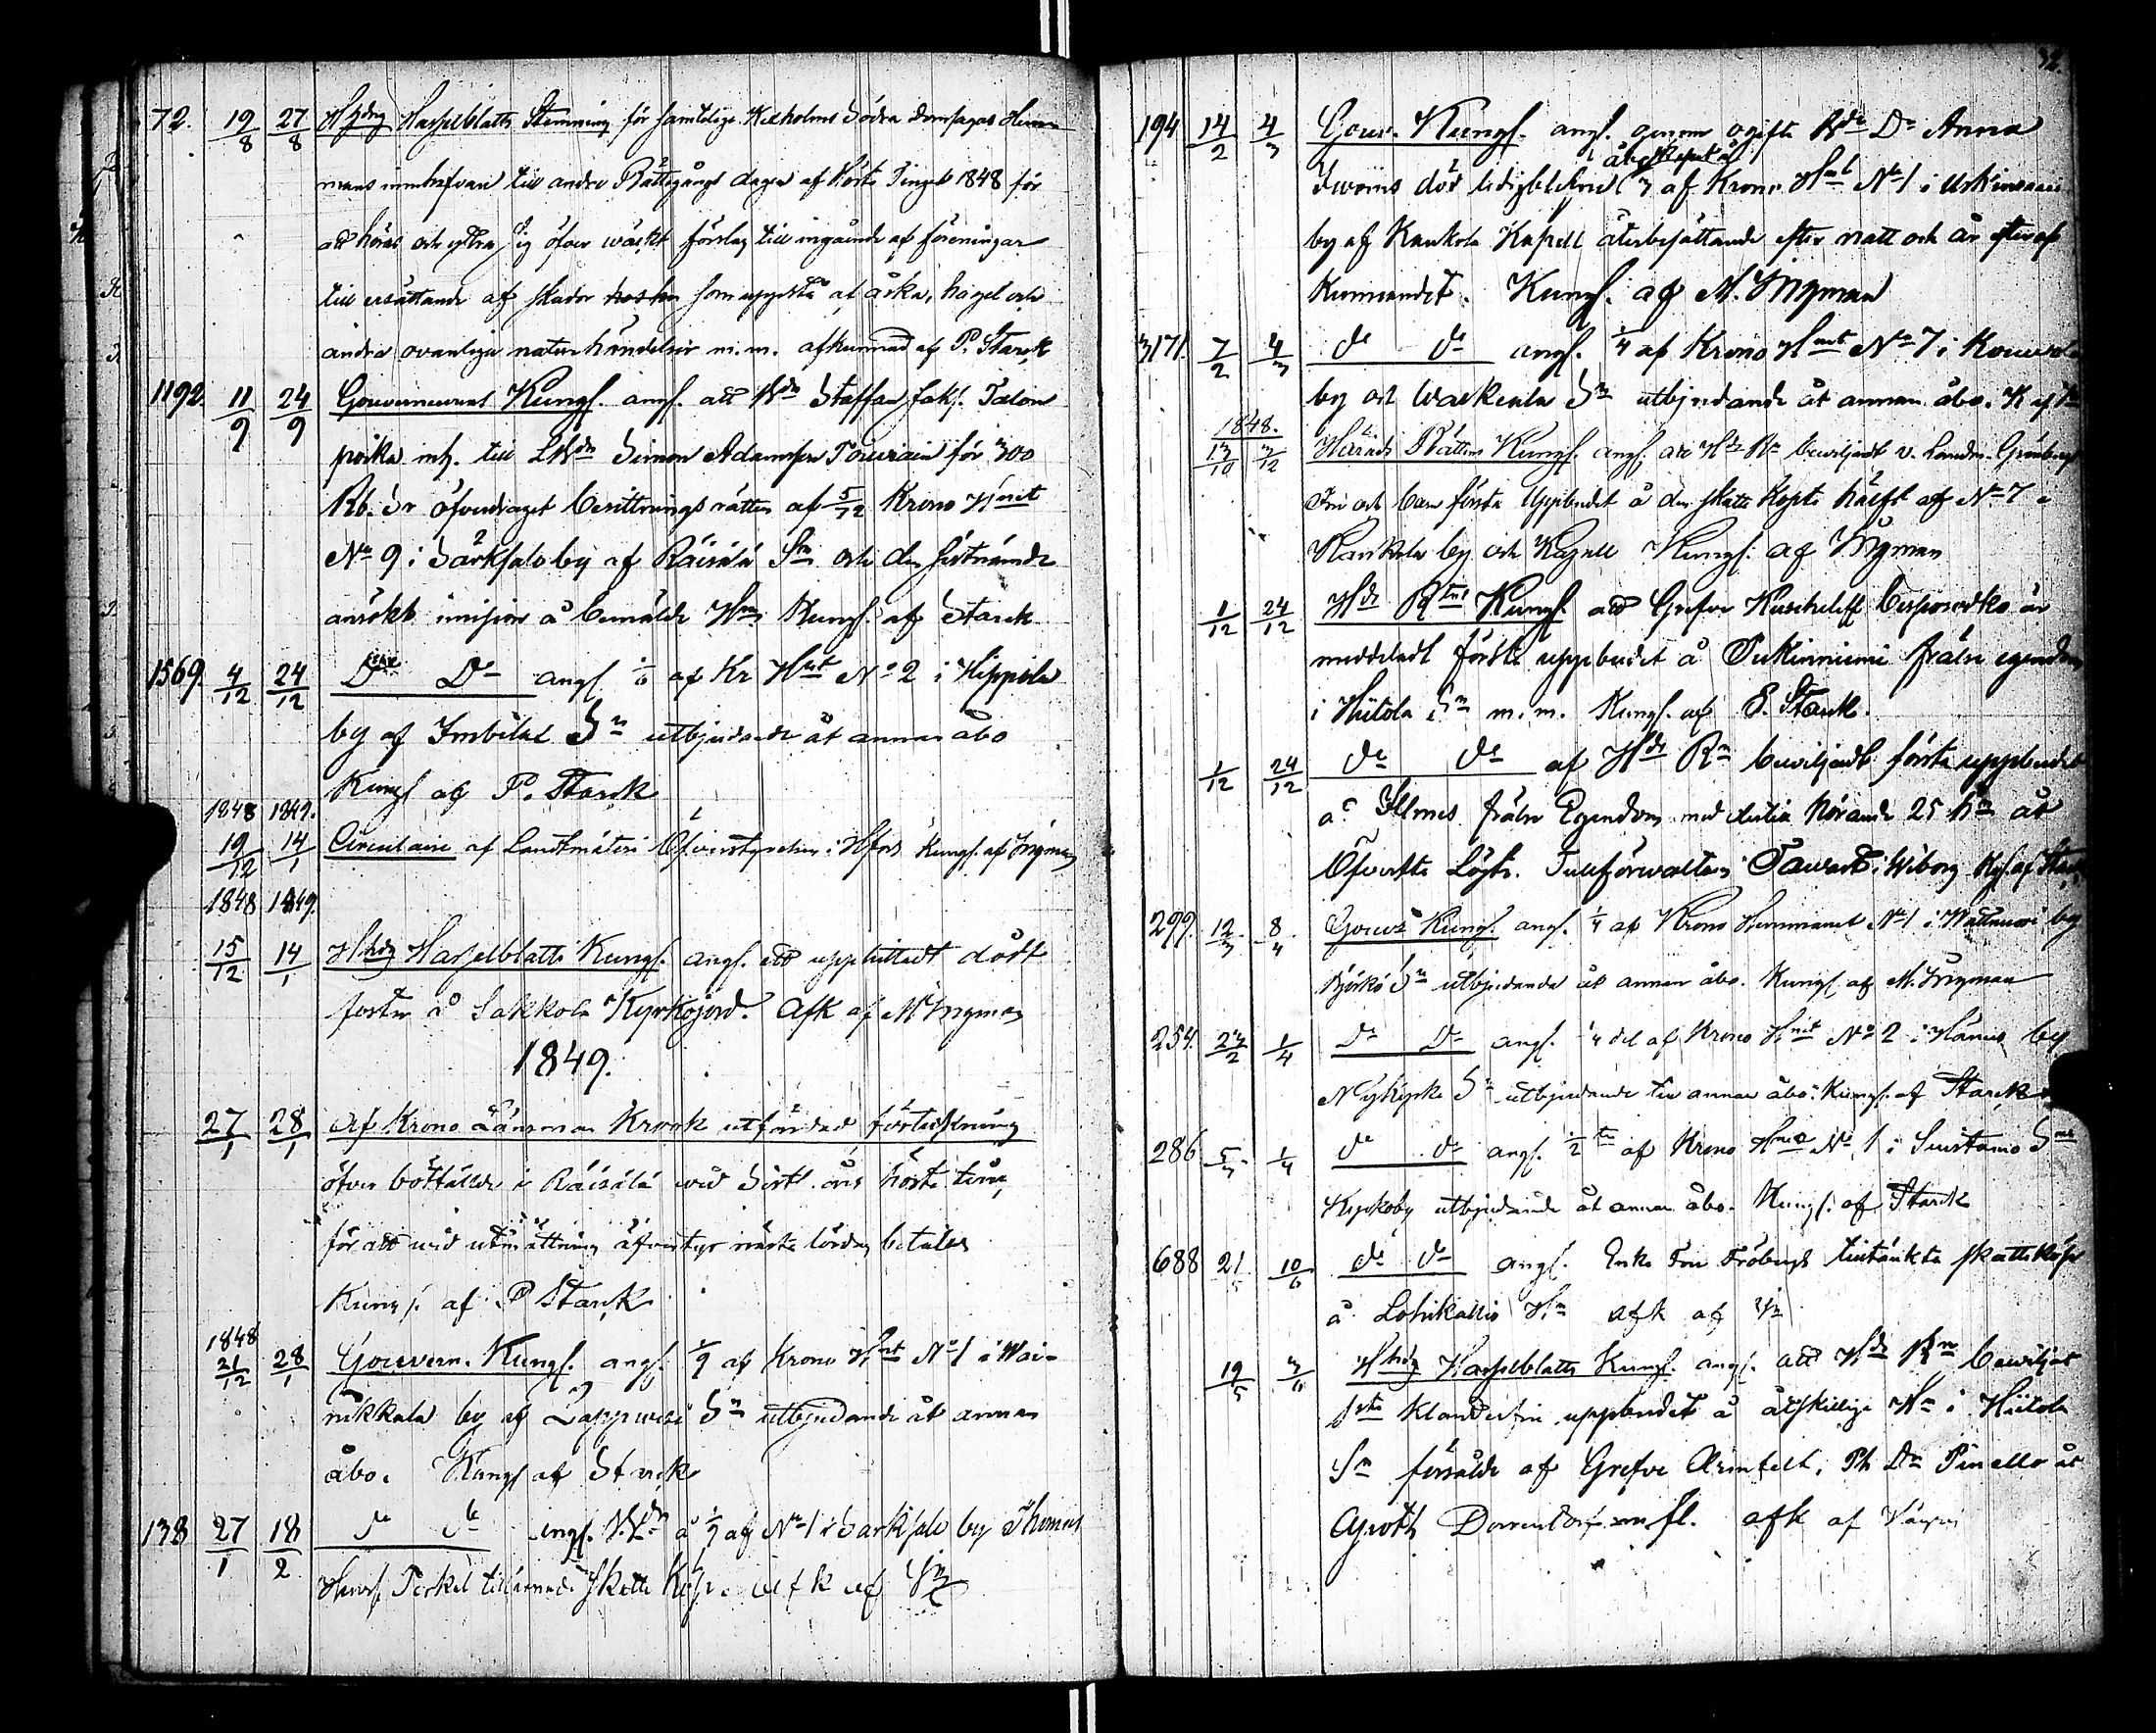 72. 19/8 27/8 Hhdg Hasselblatts Stemning för samtelige Kexholms Södra domsagas Hemmans
mans innehafvare till andra Rättegångs dagen af Höste Tinget 1848 för
att höras och yttra sig öfver wäckt förslag till ingående af föreningar
till ersättande af skador som uppstå af åska, hagel och
andra ovanliga naturhändelser m.m. afkunnad af P. Starck
1192. 11/9 24/9 Gouverneurens Kungl. angl. att Bdn Staffan Jaks. Talon
poika inh. till LBdn Simon Adamsson Touviain för 300
Rb. Sr öfverdraget besittnings rätten af 5/12 Krono Hmt
No 9 i Särksalo by af Räisälä Sn och den sistnämnde
ansökt imission å bemälde Hm Kungl. af Starck
1569. 4/12 24/12 Do Do angl. 1/6 af Kr Hmt No 2 i Hippola
by af Imbilax Sn utbjudande åt annan åbo
Kungl af P. Starck
1848 1849.
19/12 14/1 Circulaire af Landtmäteri Öfverstyrelsen i Hfors Kungl. af Ingman
1848 1849.
15/12 14/1 Hhdg Hasselblatts Kungl. angl. ett upphittadt dödt
foster å Sakkola Kyrkojord. Afk af M Ingman
1849.
27/1 28/1 Af Krono Länsman Krook utfärdad förteckning
öfver bötfällde i Räisälä wid Sistl. års höste ting,
för att wid utmättnings äfventyr nästa lördag betalas
Kungl. af P Starck
1848
21/12 28/1 Gouvern. Kungl. angl. 1/9 af Krono Hmt No 1 i Wai-
nikkala by af Lappwesi Sn utbjudande åt annan
åbo. Kungl af Starck
138 27/1 18/2 de de angl. å 1/2 af No 1 i Särkisalo by Thomas
Perkel tillämnade Skatte Köp. afk af Im
32.
194 14/2 4/3 Gouv. Kungl. angl. genom ogifta Bde Dr Anna
åbyskapet å
Iwoins död ledigblefne 1/3 af Krono Hmt No 1 i
by af Kaukola Kapell återbesättande efter natt och år efter af
Kunnandet. Kungl. af M. Ingman
3171. 7/2 4/3 de de angl. 1/4 af Krono Hmt No 7 i Kouvola
by och Walkeala Sn utbjudande åt annan åbo. K af Im
1848.
13/10 3/12 Härads Rättens Kungl. angl. att Hds Rn bewiljadt v. Landm. Grönberg
Fru och barn första Uppbudet å den skatte Köpte hälft af No 7 i
Kaukola by och Kapell Kungl. af Ingman
1/12 24/12 Hds Rtns Kungl. att Grefve Kuscheleff Besborodko är
meddeladt första uppbudet å Pukinniemi frälse egendom
i Hiitola Sn m.m. Kungl. af P. Starck.
1/12 24/12 de de af Hds Rn bewiljadt första uppbudet
å Ilmes frälse Egendom med dertill hörande 25 hn åt
Öfverste Löjtn. Tullförwaltaren Tawast i Wiborg Kgl. af Starck
299. 12/3 8/4 Gouvs Kungl. angl. 1/4 af Krono Hemmanet No 1 i by
Björkö Sn utbjudande åt annan åbo. Kungl af M. Ingman
254. 23/2 1/4 Do Do angl. 1/4 del af Krono Hmt No 2 i by
Nykyrka Sn utbjudande till annan åbo: Kungl. af Starck
286 5/3 1/4 de de angl. 1/2 te af Krono Hmt No 1 i Suistamo Sns
Kyrkoby utbjudande åt annan åbo. Kungl. af Starck
688 21/5 10/6 de de angl. Enke Fru Frobergs tilltänkta skatteköp
å Lohikallio Hm afk af Im
19/5 3/6 Hhdg Hasselblatts Kungl. angl. att Hds Rn bewiljat
1sta Klander fria uppbudet å åtskillige Hn i Hiitola
Sn försålde af Grefve Armfelt, Ph Dr Pinello åt
m fl. afk af